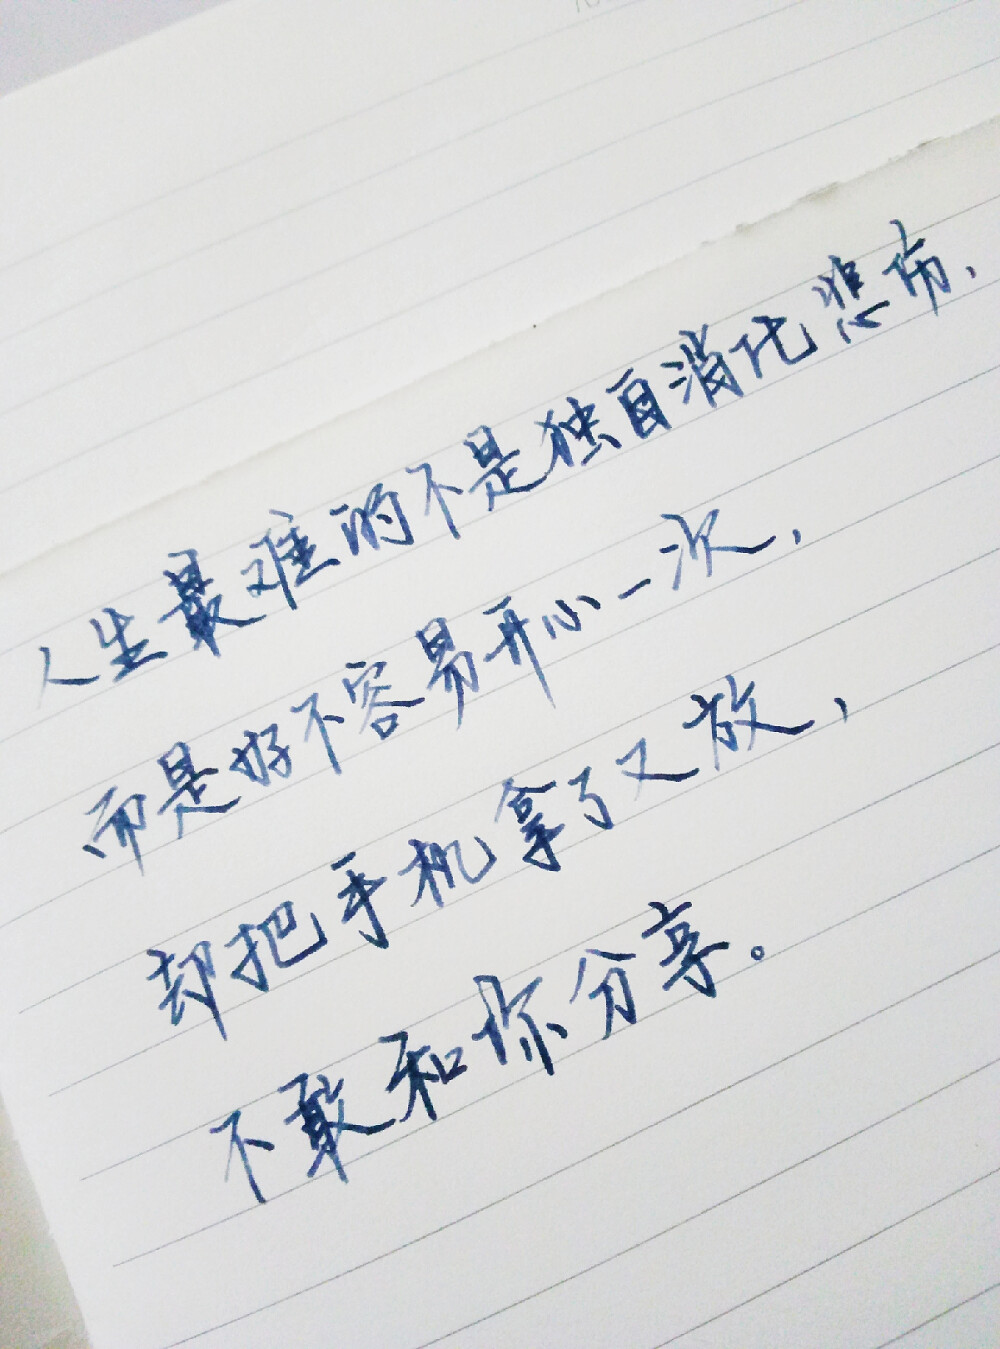 人生最难的不是独自消化悲伤、
而是好不容易开心一次，
却把手机拿了又放，
不敢和你分享。